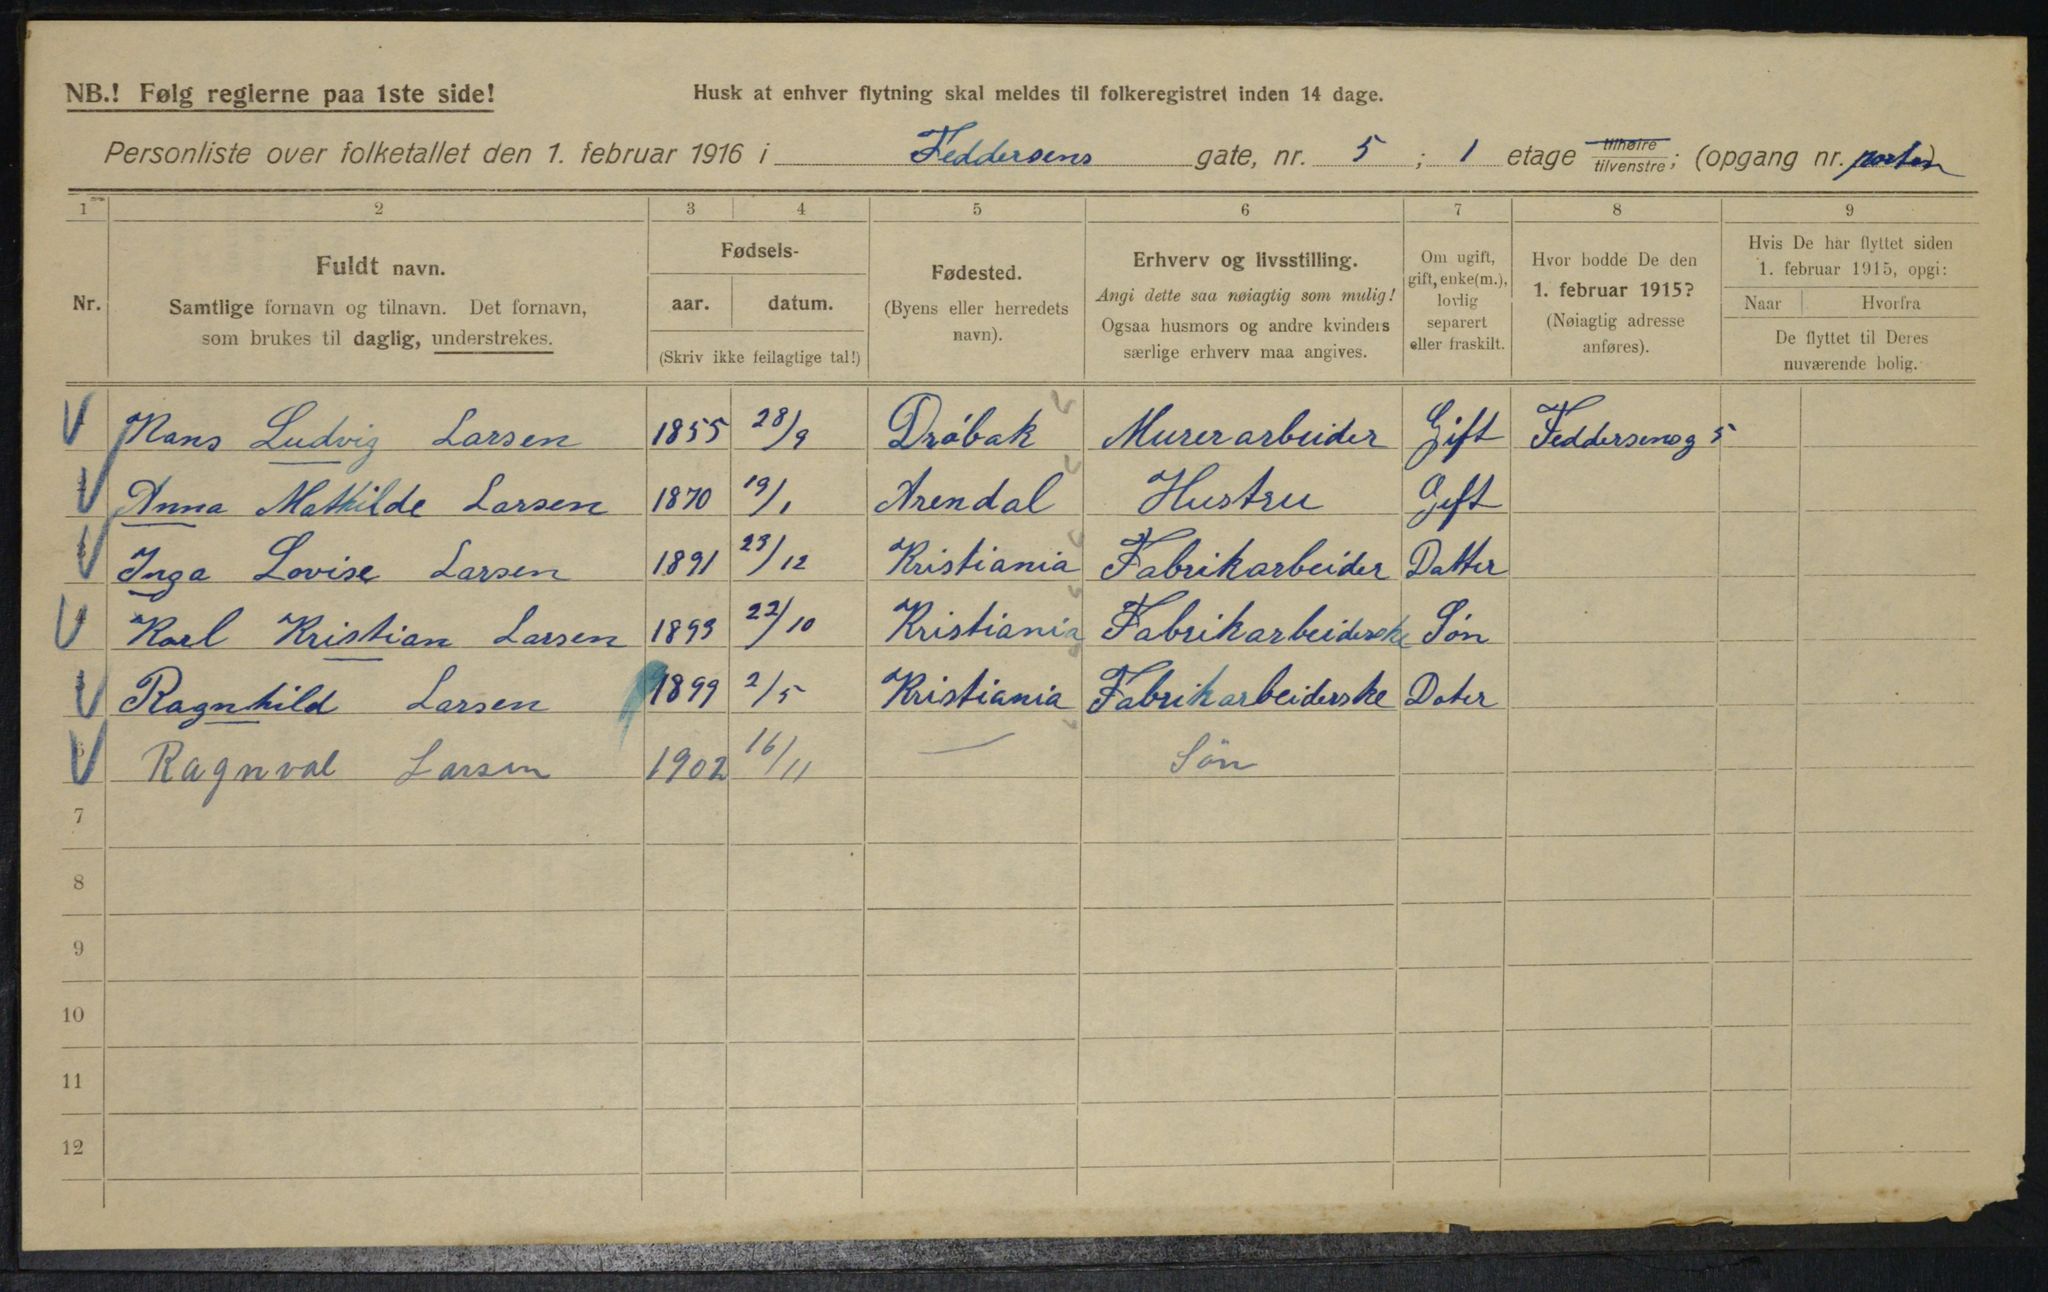 NB.! Følg reglerne paa 1ste side! Husk at enhver flytning skal meldes til folkeregistret inden 14 dage.
Personliste over folketallet den 1. februar 1916 i Feddersens gate, nr. 5 ; 1 etage tilhøire/tilvenstre; (opgang nr. porten)
1 2 3 4 5 6 7 8 9
Nr. Fuldt navn. Samtlige fornavn og tilnavn. Det fornavn, som brukes til daglig, understrekes. Fødsels- aar. datum. (Skriv ikke feilagtige tal!) Fødested. (Byens eller herredets navn). Erhverv og livsstilling. Angi dette saa nøiagtig som mulig! Ogsaa husmors og andre kvinders særlige erhverv maa angives. Om ugift, gift, enke(m.), lovlig separert eller fraskilt. Hvor bodde De den 1. februar 1915? (Nøiagtig adresse anføres). Hvis De har flyttet siden 1. februar 1915, opgi: Naar Hvorfra De flyttet til Deres nuværende bolig.
Hans Ludvig Larsen 1855 28/9 Drøbak Murerarbeider Gift Feddersensg 5
Anna Mathilde Larsen 1870 19/1 Arendal Hustru Gift
Inga Lovise Larsen 1891 23/12 Kristiania Fabrikarbeider Datter
Karl Kristian Larsen 1893 22/10 Kristiania Fabrikarbeiderske Søn
Ragnhild Larsen 1899 2/5 Kristiania Fabrikarbeiderske Dater
Ragnval Larsen 1902 16/11 — Søn
7
8
9
10
11
12